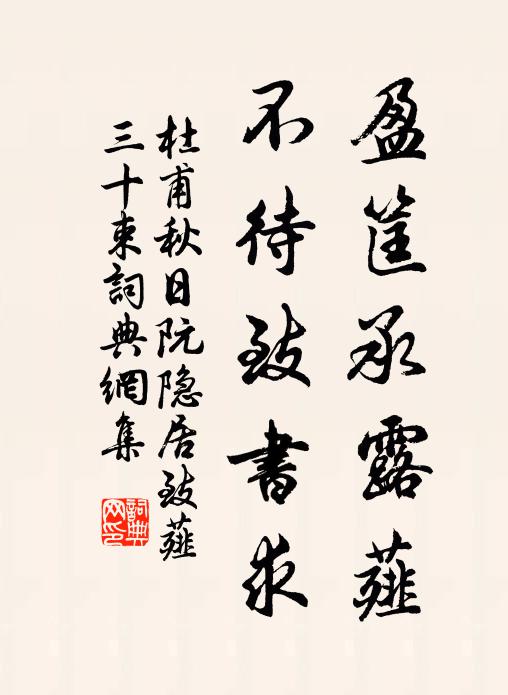 盈筐承露薤
不待致書求
杜甫秋日阮隐居致薤
三十束詞典網集
詞典
网印